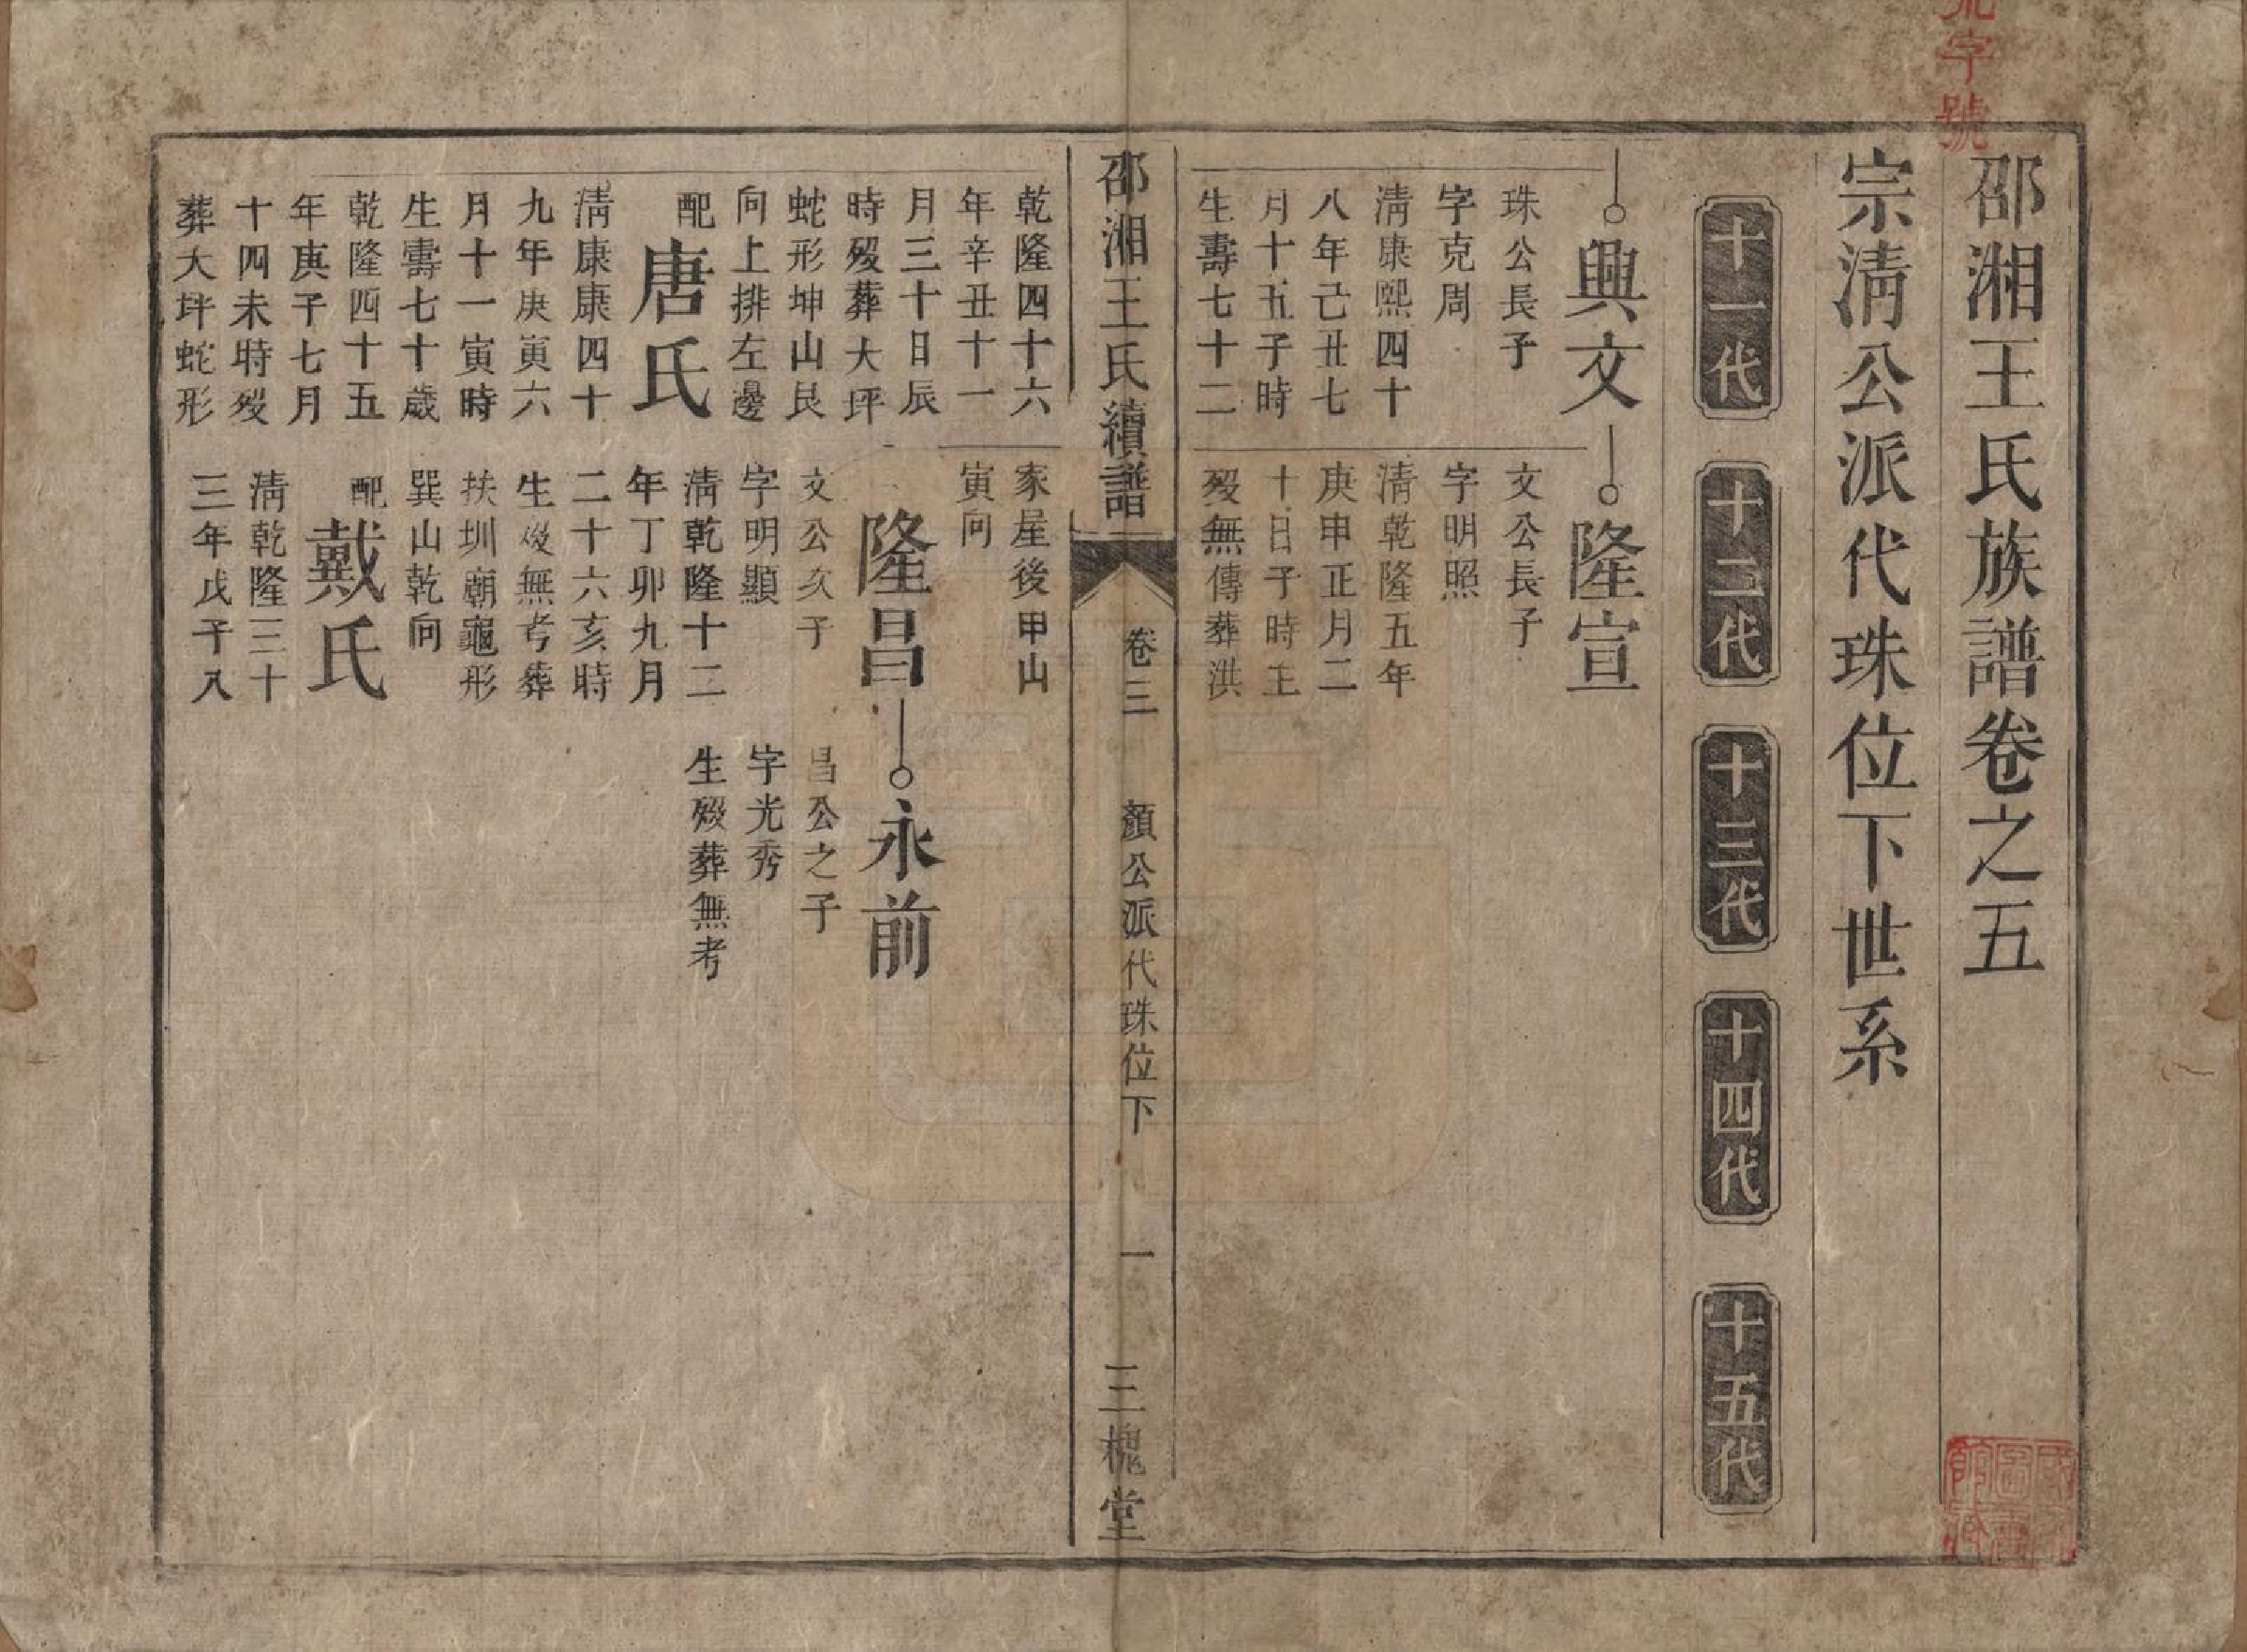 荒字號
邵湘王氏族譜卷之五
宗淸公派代珠位下世系
十一代
十二代
十三代
十四代
十五代
興文
珠公長子
字克周
淸康熙四十
八年己丑七
月十五子時
生壽七十二
隆宣
文公長子
字明照
淸乾隆五年
庚申正月二
十日子時生
歿無傳葬洪
邵湘王氏續譜
卷三
顏公派代珠位下
一
三槐堂
乾隆四十六
年辛丑十一
月三十日辰
時歿葬大坪
蛇形坤山艮
向上排左邊
配唐氏
淸康康四十
九年庚寅六
月十一寅時
生壽七十歲
乾隆四十五
年庚子七月
十四未時歿
葬大坪蛇形
家屋後甲山
寅向
隆昌
文公次子
字明顯
淸乾隆十二
年丁卯九月
二十六亥時
生歿無考葬
扶圳廟龜形
巽山乾向
配戴氏
淸乾隆三十
三年戊子八
永前
昌公之子
字光秀
生歿葬無考